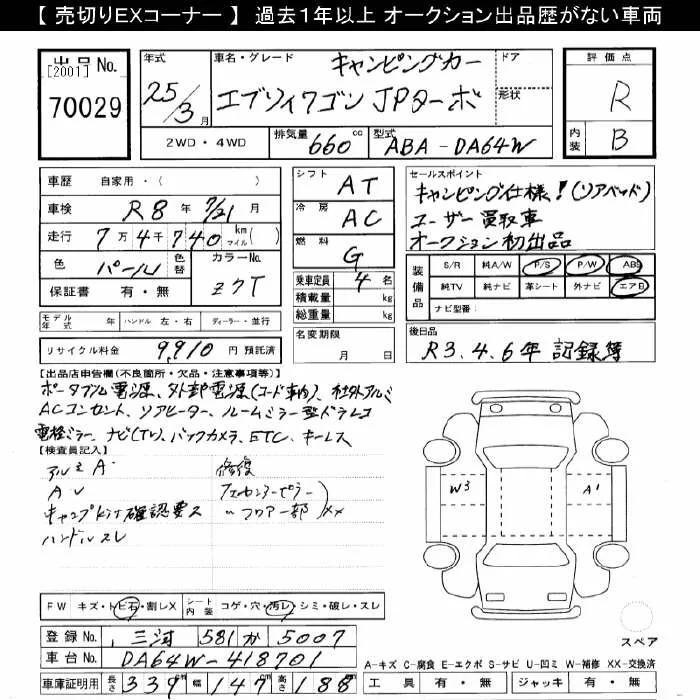 【 売切りEXコーナー 】 過去1年以上 オークション出品歴がない車両
出品No.
[2001]
70029
年式
25/3月
車名・グレード
キャンピングカー
エブリィワゴン JPターボ
ドア
形状
評価点
R
内装
B
2WD・4WD
排気量
660cc
型式
ABA-DA64W
車歴 自家用・( )
車検 R8年 7/21月
走行 7万4千740 km マイル( )
色 パール 色替
カラーNo. Z7T
保証書 有・無
シフト AT
冷房 AC
燃料 G
乗車定員 4名
積載量 kg
総重量 kg
セールスポイント
キャンピング仕様!(リアベッド)
ユーザー買取車
オークション初出品
装備品
S/R 純A/W P/S P/W ABS
純TV 純ナビ 革シート 外ナビ エアB
ナビ型番:
モデル年式 年 ハンドル 左・右 ディーラー・並行
名変期限
月 日
後日品
R3.4.6年 記録簿
リサイクル料金 9,910円 預託済
【出品店申告欄(不良箇所・欠品・注意事項等)】
ポータブル電源、外部電源(コード車内)、社外アルミ
ACコンセント、リアヒーター、ルームミラー型ドラレコ
電格ミラー、ナビ(TV)、バックカメラ、ETC、キーレス
【検査員記入】
アルミA・
AU
キャンプkit確認要ス
ハンドルスレ
修復
フェセンターピラー
〃フロアー部 XX
W3
A1
FW キズ・トビ石・割レX シート内装 コゲ・穴・汚レ・シミ・破レ・スレ
登録No. 三河 581 か 5007
車台No. DA64W-418701
車庫証明用 長さ 339 幅 147 高さ 188
スペア
A-キズ C-腐食 E-エクボ S-サビ U-凹ミ W-補修 XX-交換済
工具 有・無 ジャッキ 有・無